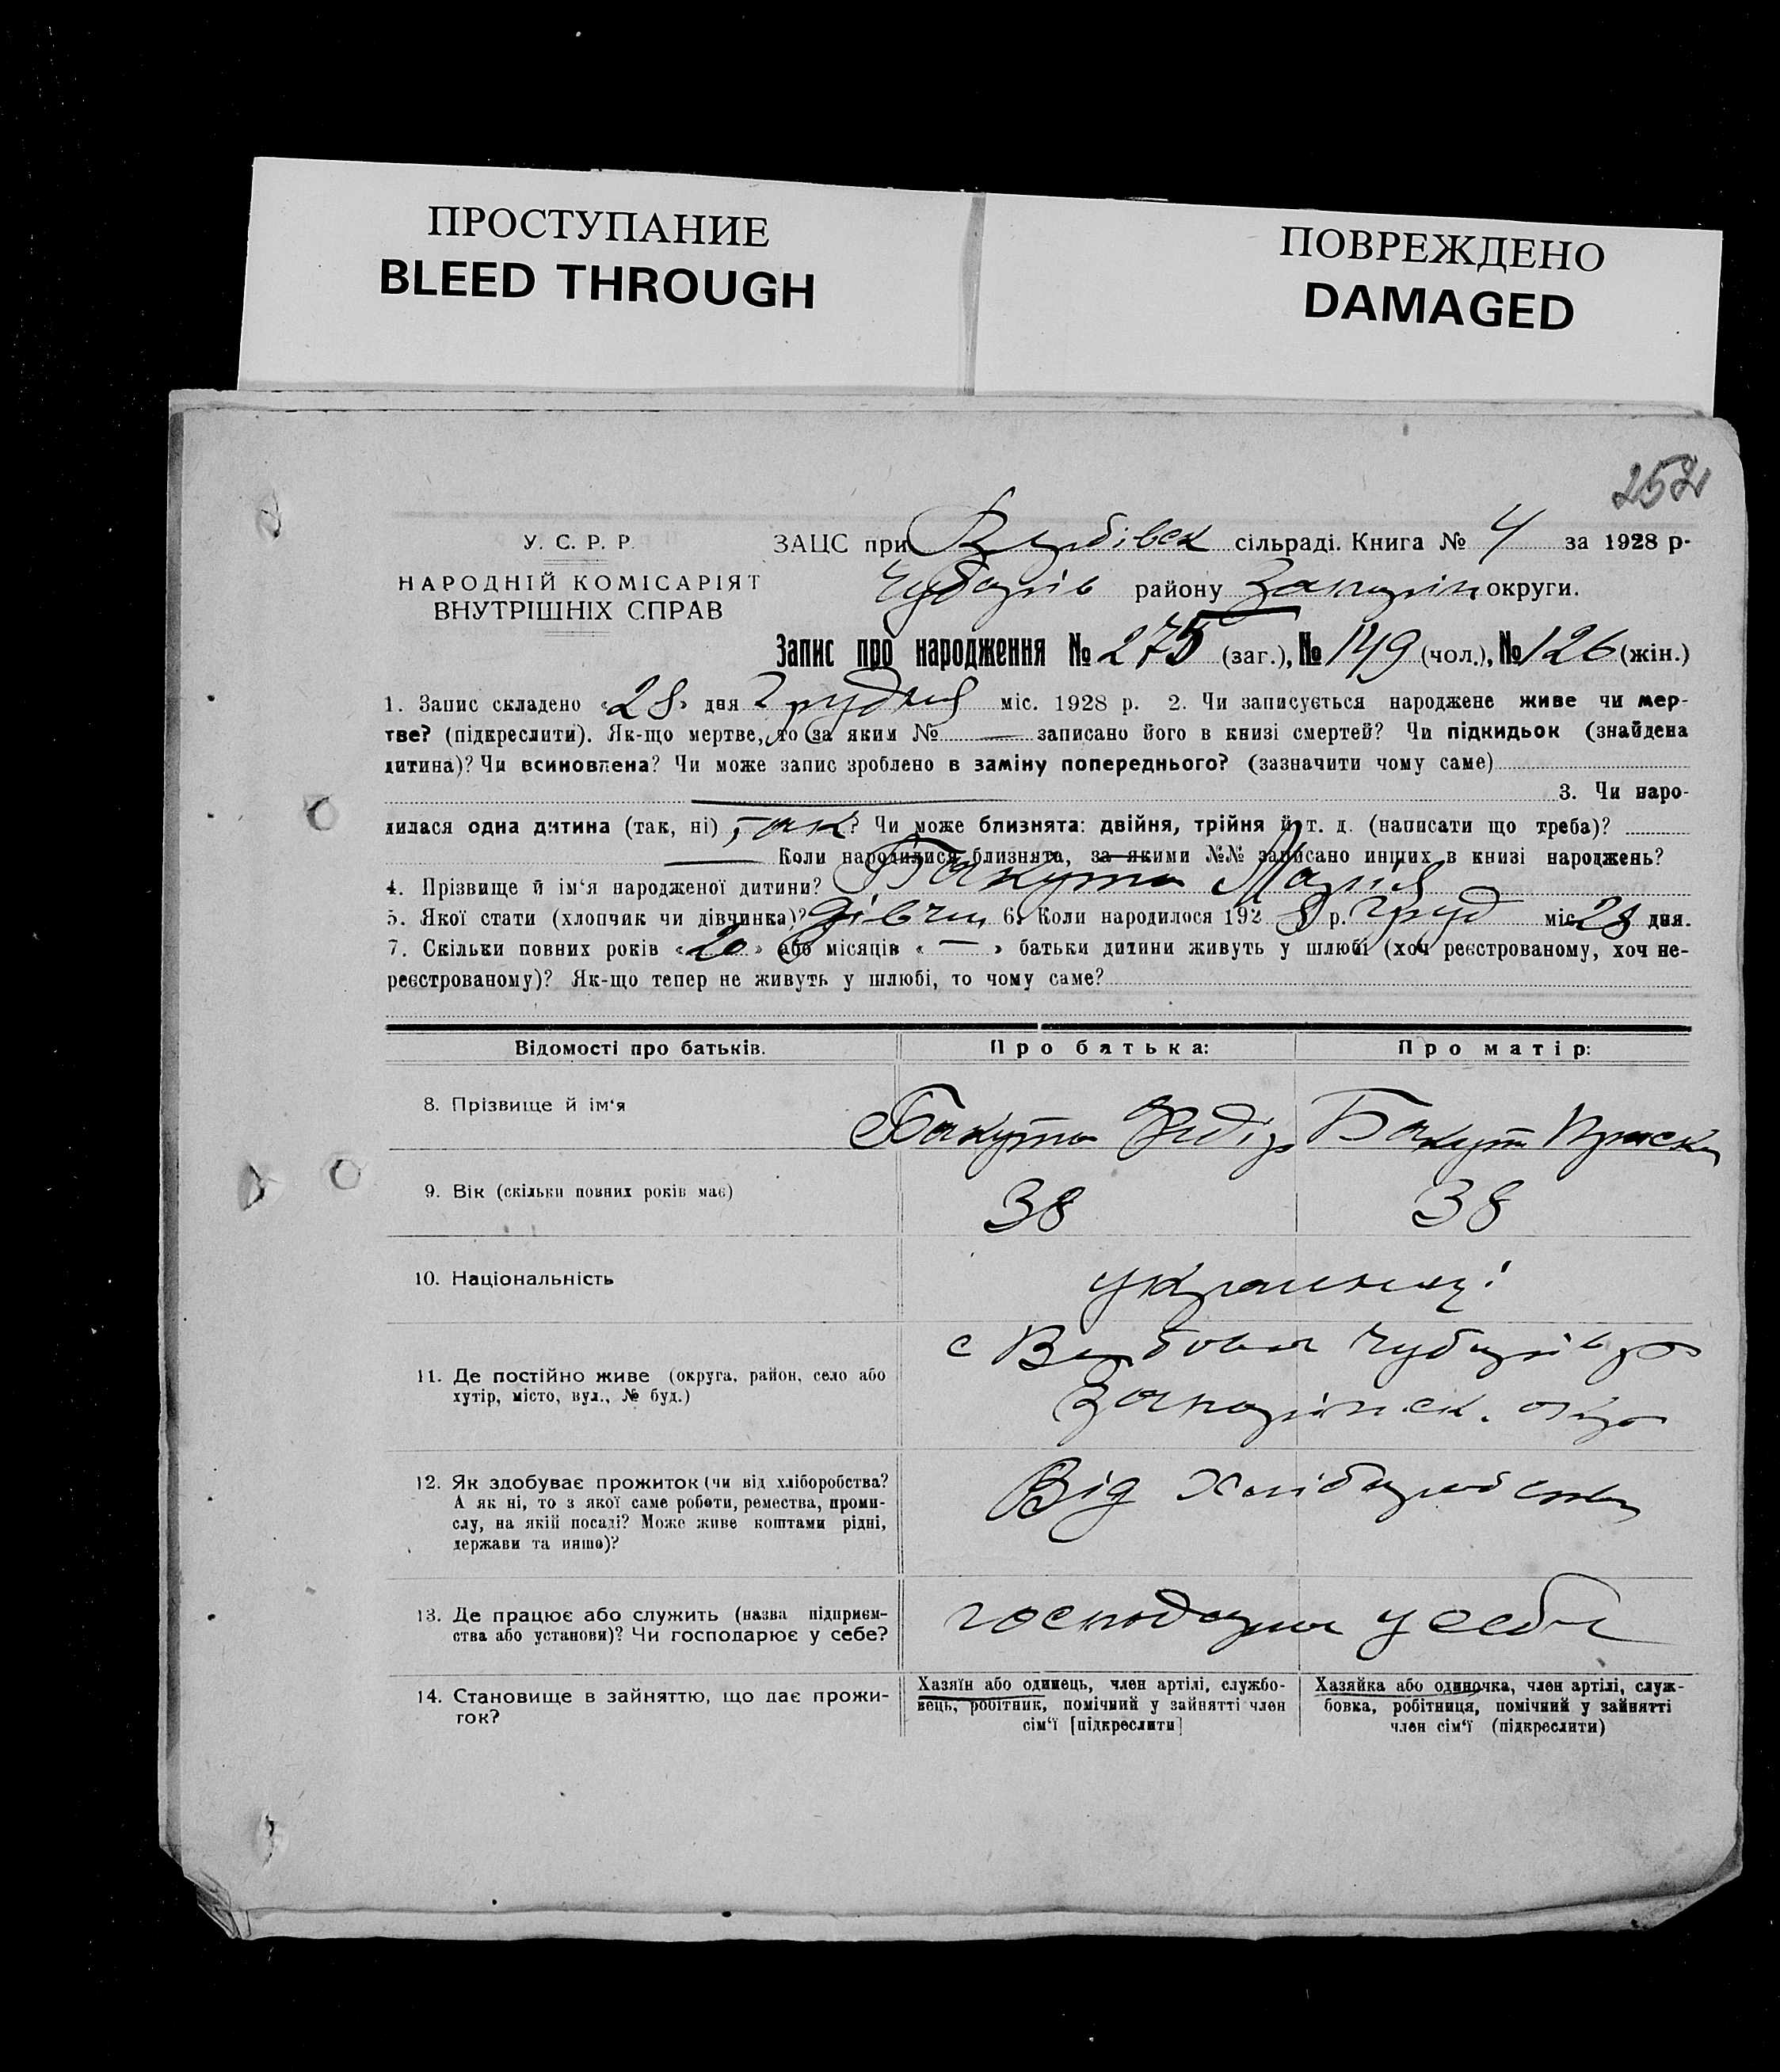 ПРОСТУПАНИЕ
BLEED THROUGH
ПОВРЕЖДЕНО
DAMAGED
252
У. С. Р. Р.
НАРОДНІЙ КОМІСАРІЯТ
ВНУТРІШНІХ СПРАВ
ЗАЦС при Вербівск сільраді. Книга № 4 за 1928 р.
Чубарів району Запоріж округи.
Запис про народження № 275 (заг.), № 149 (чол.), № 126 (жін.)
1. Запис складено «28» дня Грудня міс. 1928 р. 2. Чи записується народжене живе чи мер-
тве? (підкреслити). Як-що мертве, то за яким № — записано його в книзі смертей? Чи підкидьок (знайдена
дитина)? Чи всиновлена? Чи може запис зроблено в заміну попереднього? (зазначити чому саме)
3. Чи наро-
дилася одна дитина (так, ні) так? Чи може близнята: двійня, трійня й т. д. (написати що треба)?
— Коли народилися близнята, за якими №№ записано инших в книзі народжень?
4. Прізвище й ім‘я народженої дитини? Бакута Марія
5. Якої стати (хлопчик чи дівчинка)? дівчин 6. Коли народилося 1928 р. Груд міс 28 дня.
7. Скільки повних років «20» або місяців « — » батьки дитини живуть у шлюбі (хоч реєстрованому, хоч не-
реєстрованому)? Як-що тепер не живуть у шлюбі, то чому саме?
Відомості про батьків. Про батька: Про матір:
8. Прізвище й ім‘я Бакута Бакут
9. Вік (скільки повних років має) 38 38
10. Національність українці
11. Де постійно живе (округа, район, село або
хутір, місто, вул., № буд.)
с Вербова Чубарів р
Запоріжск. окр
12. Як здобуває прожиток (чи від хліборобства?
А як ні, то з якої саме роботи, ремества, проми-
слу, на якій посаді? Може живе коштами рідні,
держави та инше)?
Від Хліборобства
13. Де працює або служить (назва підприєм-
ства або установи)? Чи господарює у себе?
господарює у себе
14. Становище в зайняттю, що дає прожи-
ток?
Хазяїн або одинець, член артілі, службо-
вець, робітник, помічний у зайнятті член
сім‘ї [підкреслити]
Хазяйка або одиночка, член артілі, служ-
бовка, робітниця, помічний у зайнятті
член сім‘ї (підкреслити)